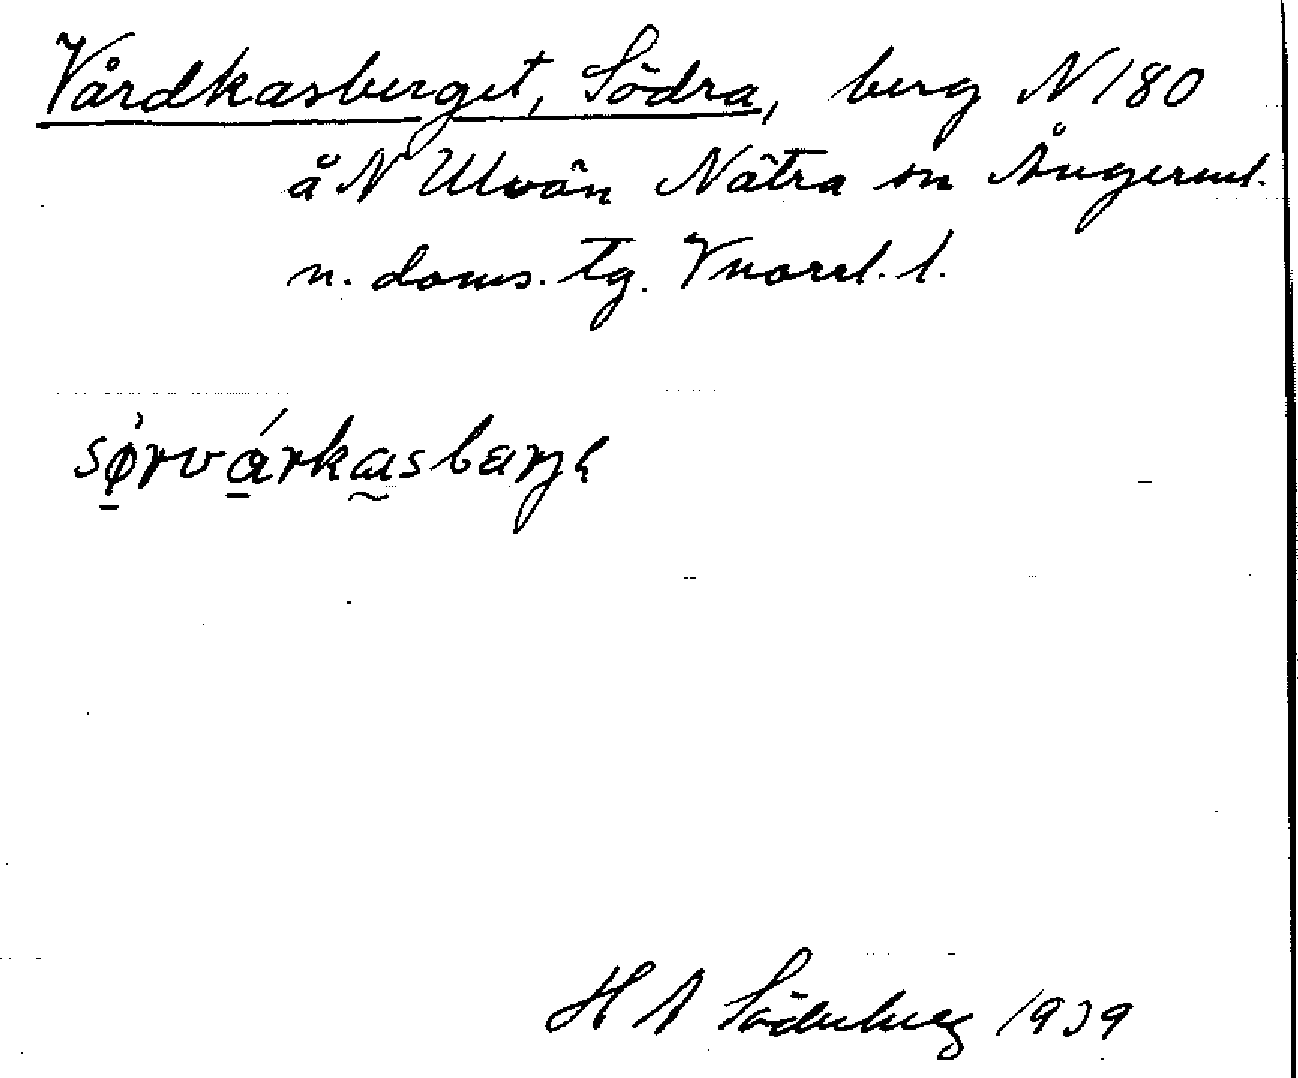 Vårdkasberget, Södra, berg N 180
å N Ulvön Nätra sn Ångerml.
n. doms. tg. Vnorrl. l.
sørvárkasbærjh
H A Söderberg 1939